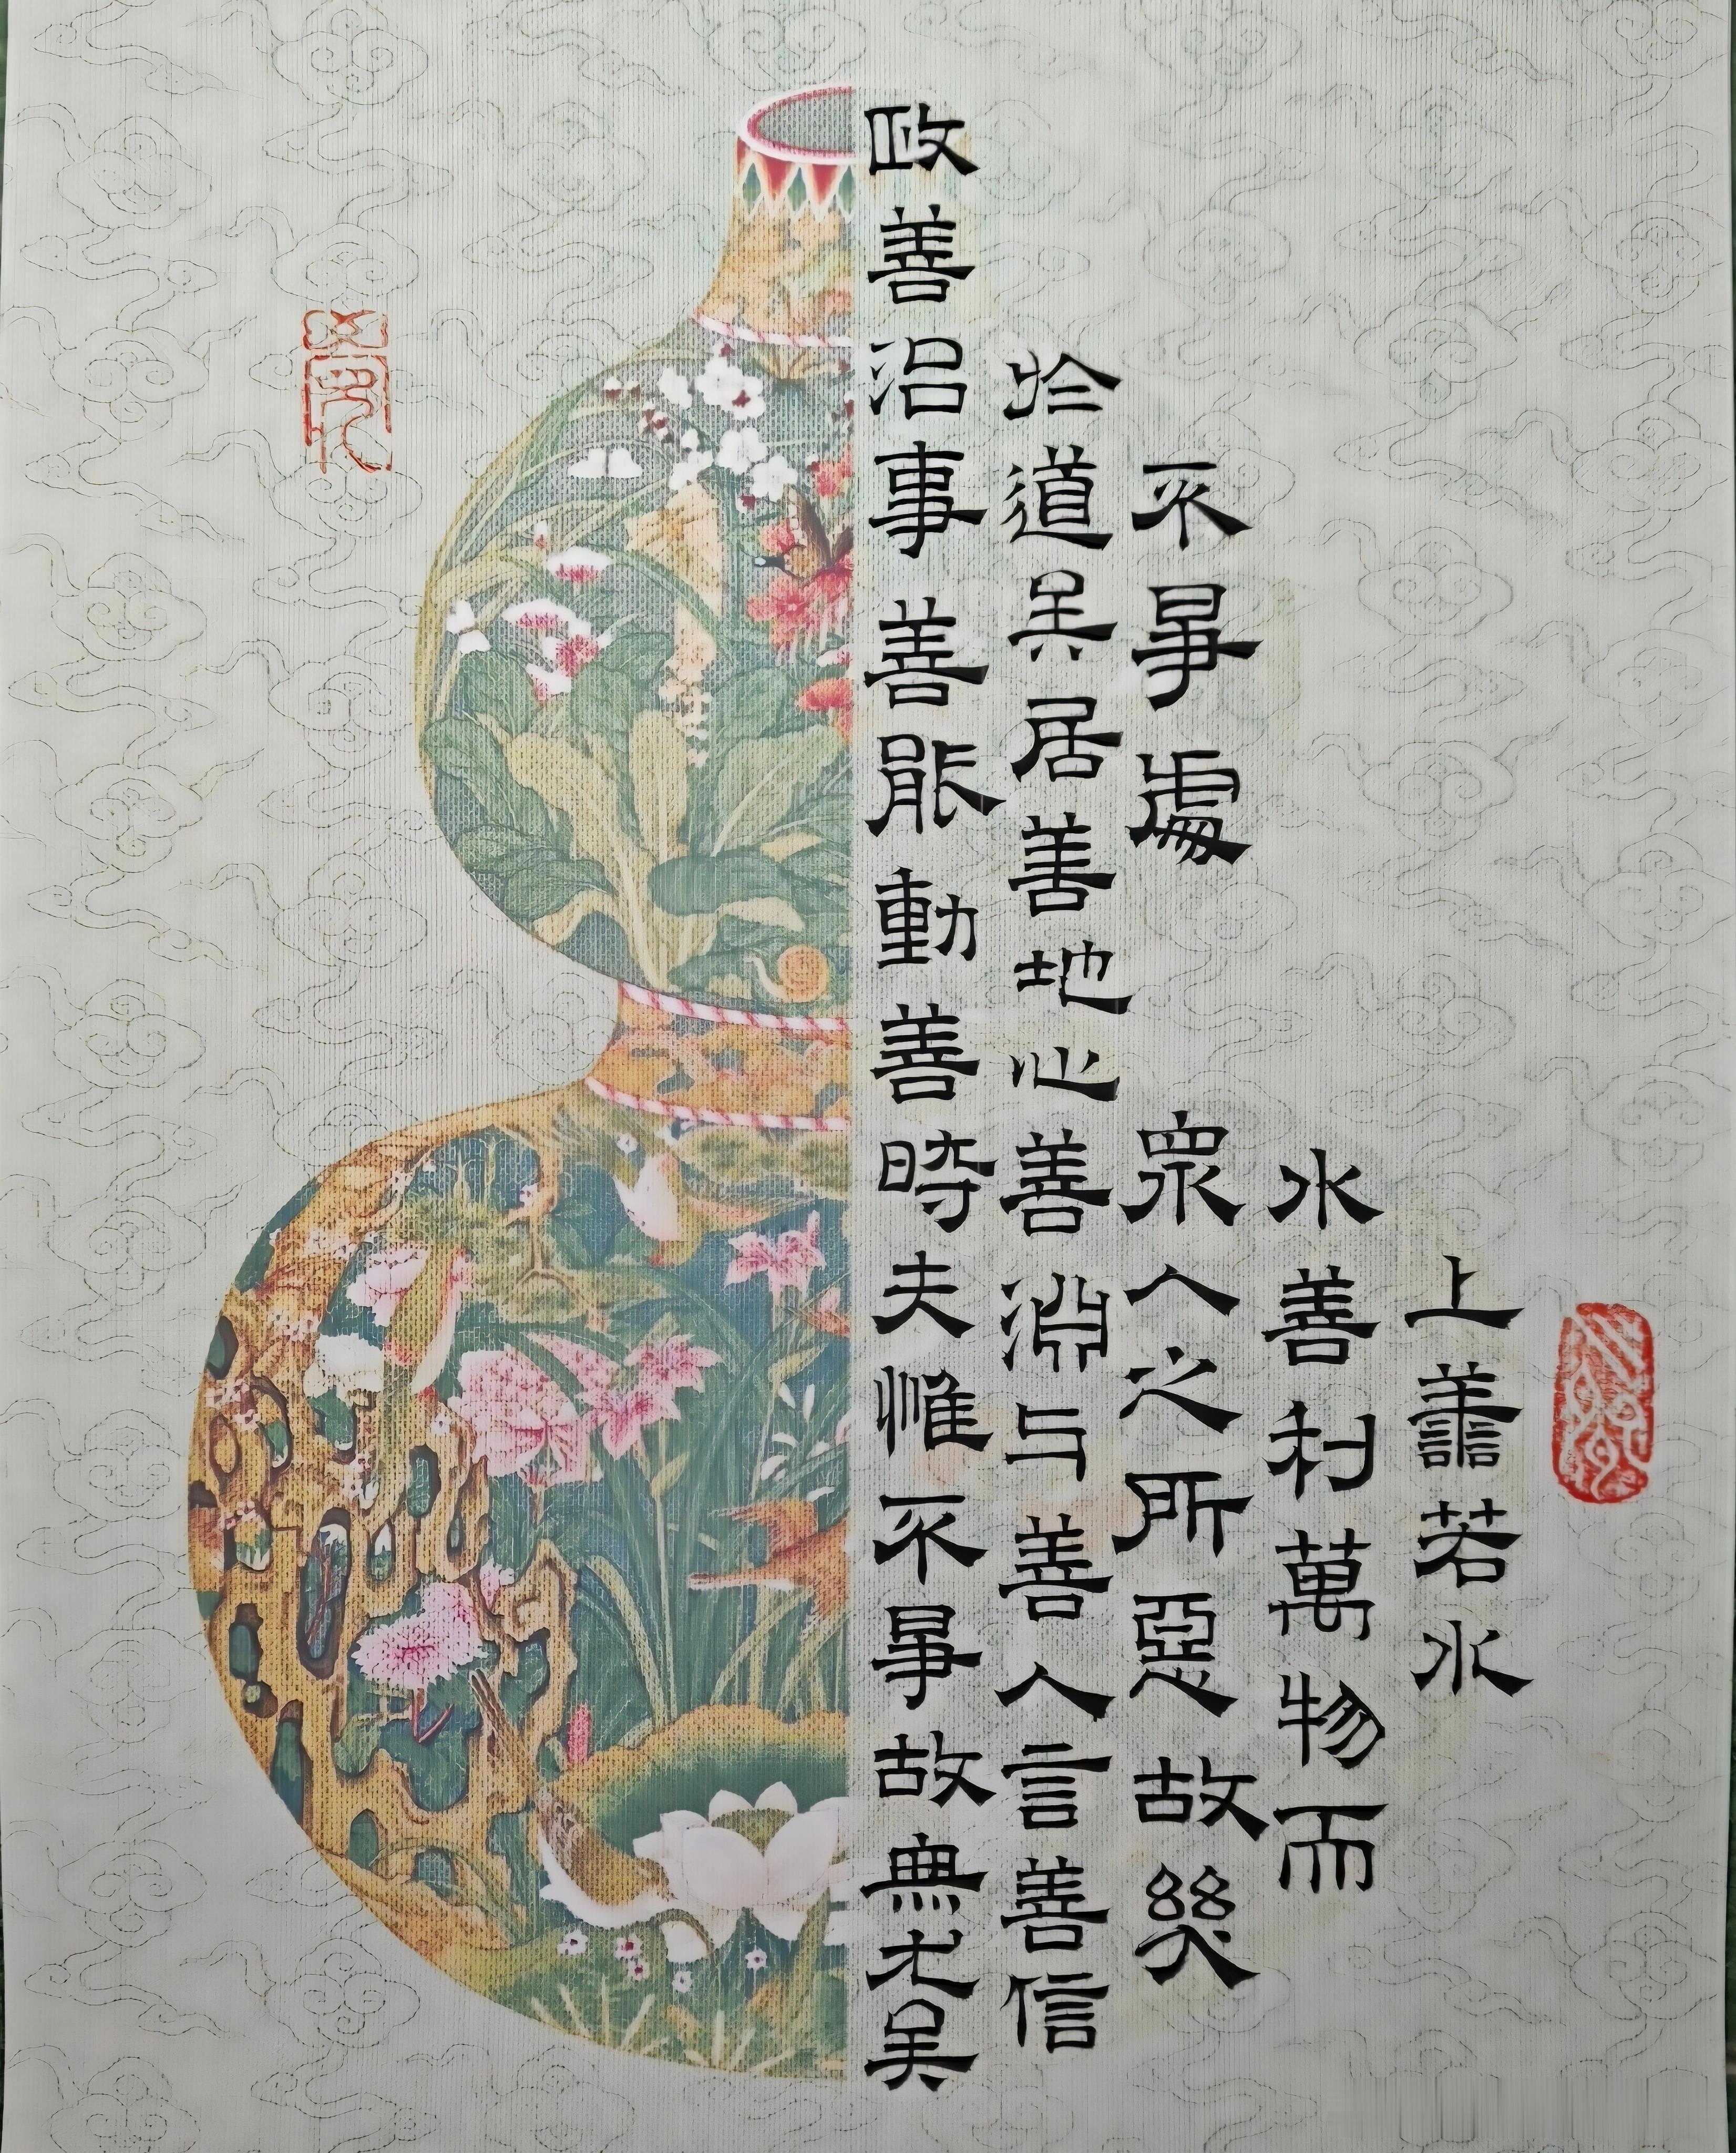 上譱若水
水善利萬物而
不爭處眾人之所惡故幾
於道矣居善地心善淵与善人言善信
政善治事善能動善時夫惟不爭故無尤矣